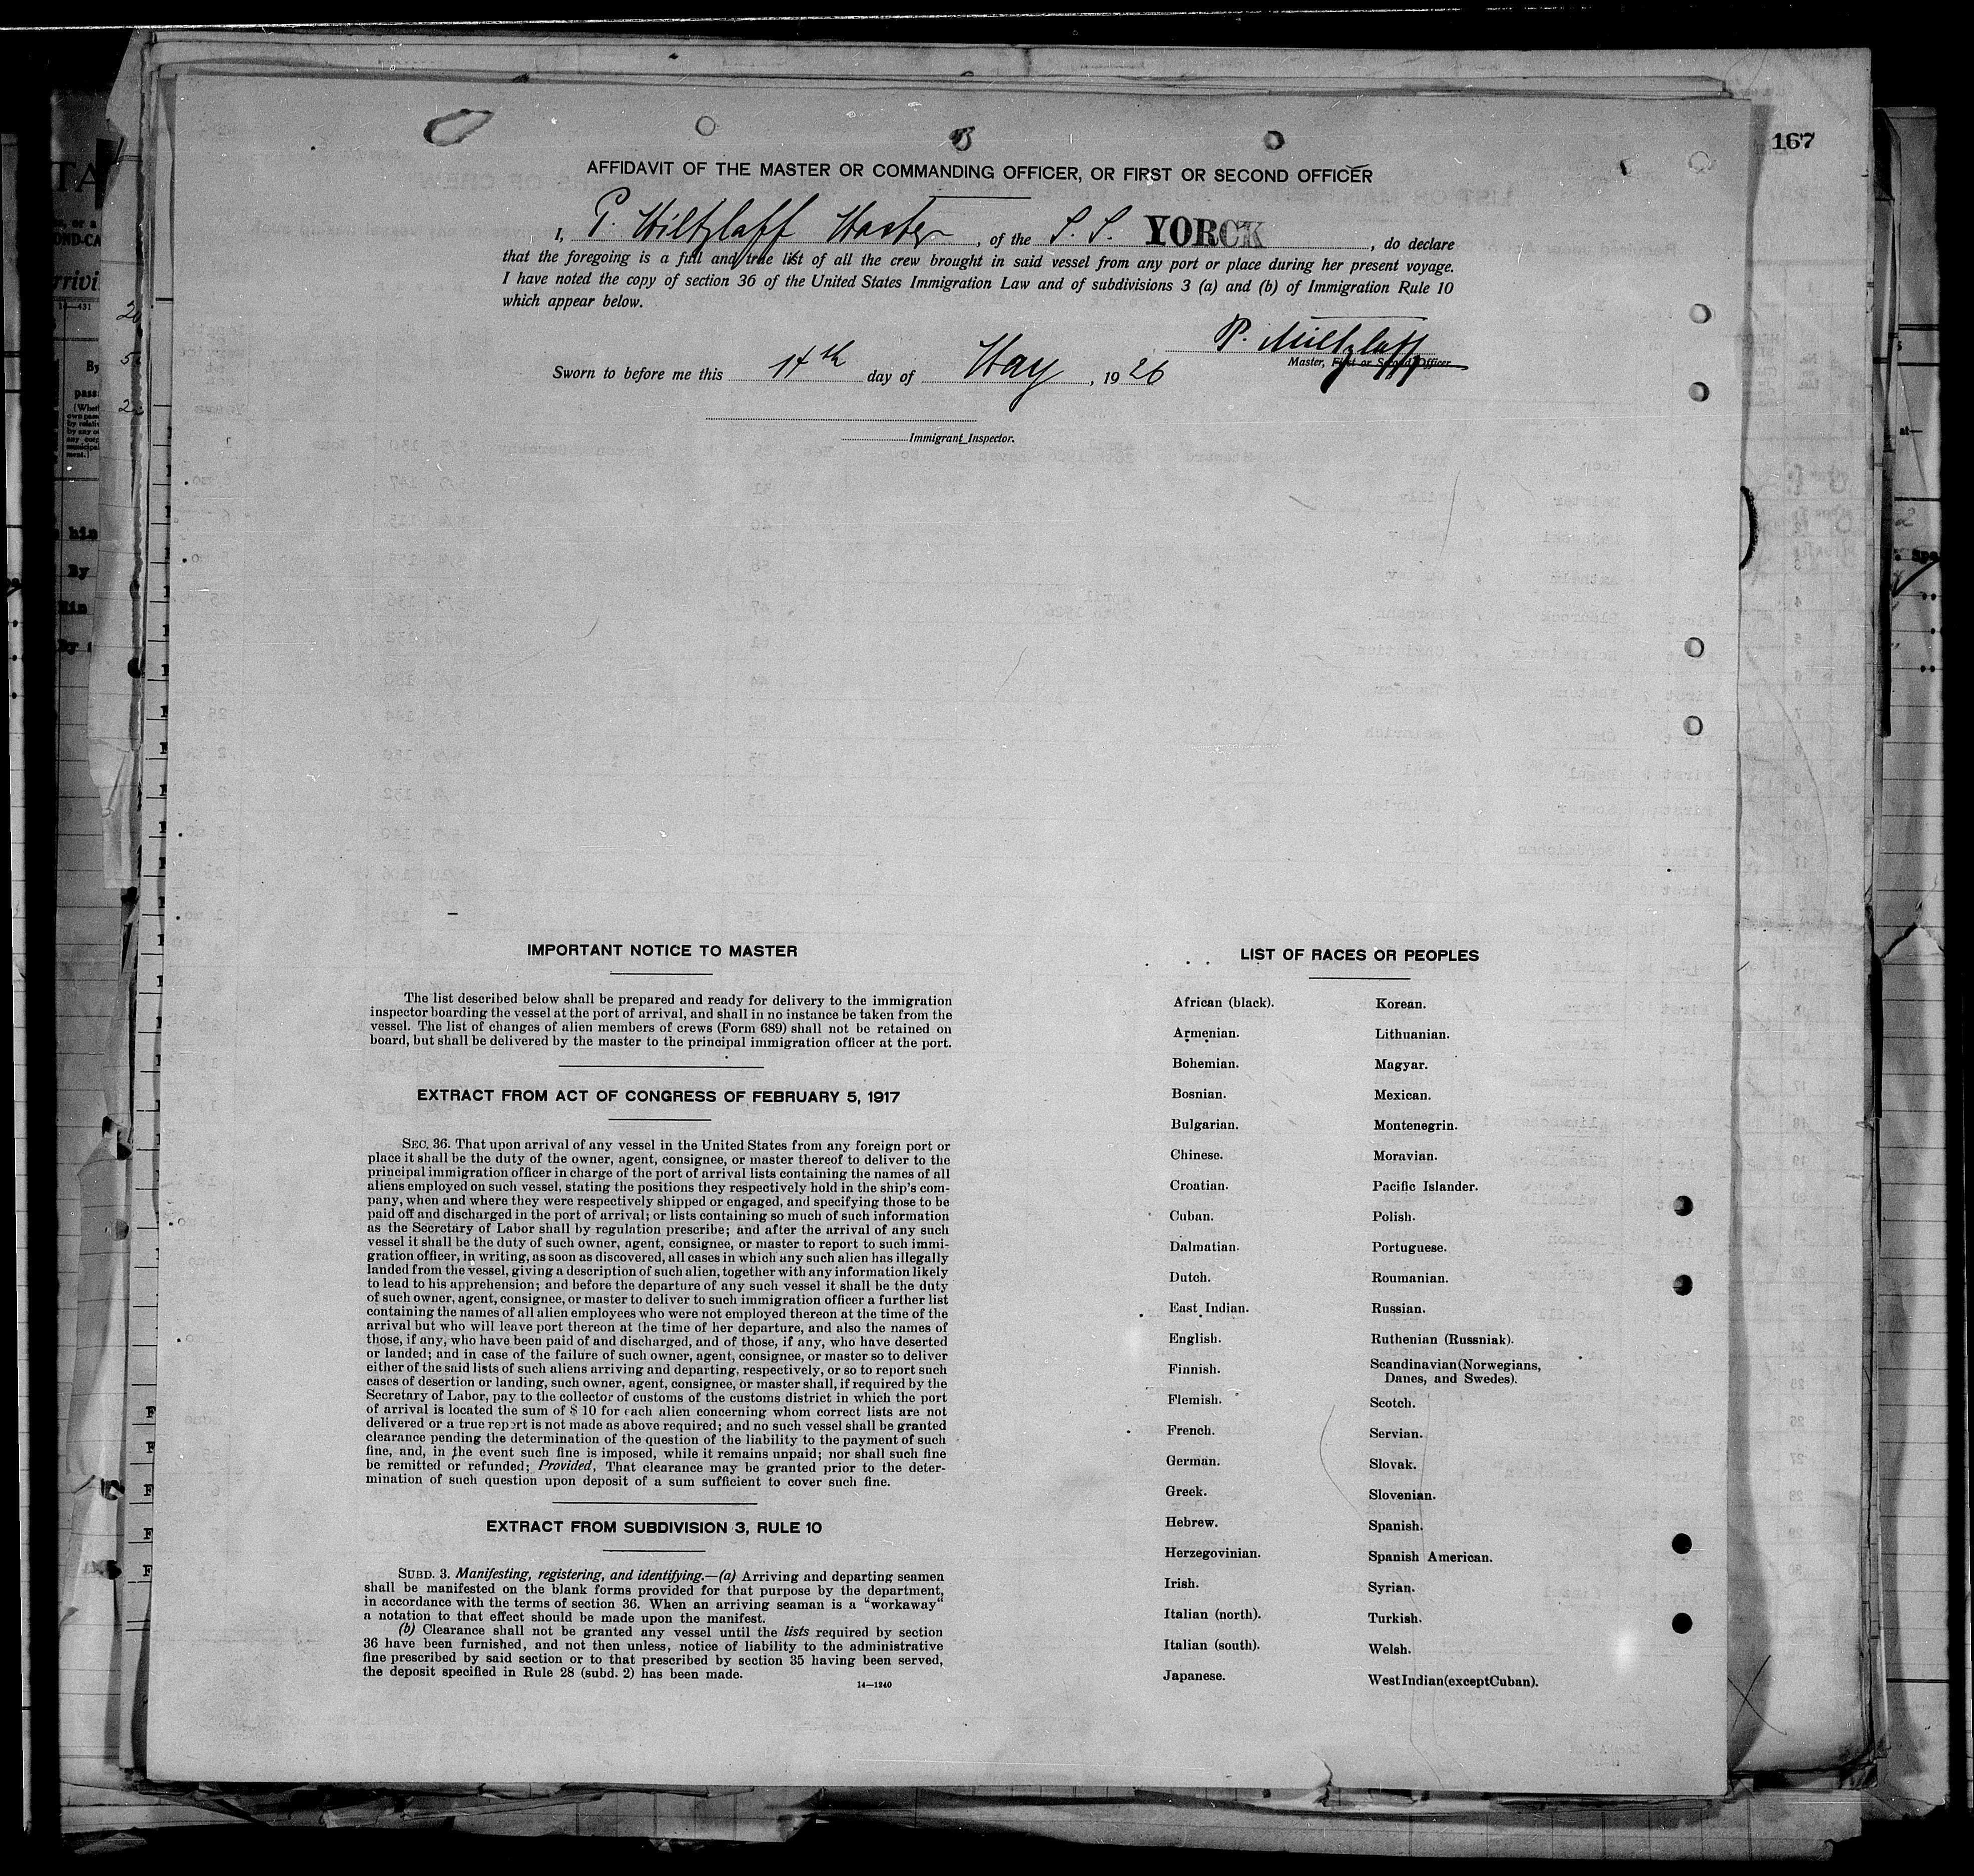 167
AFFIDAVIT OF THE MASTER OR COMMANDING OFFICER, OR FIRST OR SECOND OFFICER
I, P. Wiltzlaff Master, of the S. S. YORCK, do declare
that the foregoing is a full and true list of all the crew brought in said vessel from any port or place during her present voyage.
I have noted the copy of section 36 of the United States Immigration Law and of subdivisions 3 (a) and (b) of Immigration Rule 10
which appear below.
P. Miltzlaff
Master, First or Second Officer
Sworn to before me this 14th day of May, 1926
Immigrant Inspector.
IMPORTANT NOTICE TO MASTER
The list described below shall be prepared and ready for delivery to the immigration
inspector boarding the vessel at the port of arrival, and shall in no instance be taken from the
vessel. The list of changes of alien members of crews (Form 689) shall not be retained on
board, but shall be delivered by the master to the principal immigration officer at the port.
EXTRACT FROM ACT OF CONGRESS OF FEBRUARY 5, 1917
SEC. 36. That upon arrival of any vessel in the United States from any foreign port or
place it shall be the duty of the owner, agent, consignee, or master thereof to deliver to the
principal immigration officer in charge of the port of arrival lists containing the names of all
aliens employed on such vessel, stating the positions they respectively hold in the ship's com-
pany, when and where they were respectively shipped or engaged, and specifying those to be
paid off and discharged in the port of arrival; or lists containing so much of such information
as the Secretary of Labor shall by regulation prescribe; and after the arrival of any such
vessel it shall be the duty of such owner, agent, consignee, or master to report to such immi-
gration officer, in writing, as soon as discovered, all cases in which any such alien has illegally
landed from the vessel, giving a description of such alien, together with any information likely
to lead to his apprehension; and before the departure of any such vessel it shall be the duty
of such owner, agent, consignee, or master to deliver to such immigration officer a further list
containing the names of all alien employees who were not employed thereon at the time of the
arrival but who will leave port thereon at the time of her departure, and also the names of
those, if any, who have been paid of and discharged, and of those, if any, who have deserted
or landed; and in case of the failure of such owner, agent, consignee, or master so to deliver
either of the said lists of such aliens arriving and departing, respectively, or so to report such
cases of desertion or landing, such owner, agent, consignee, or master shall, if required by the
Secretary of Labor, pay to the collector of customs of the customs district in which the port
of arrival is located the sum of $ 10 for each alien concerning whom correct lists are not
delivered or a true report is not made as above required; and no such vessel shall be granted
clearance pending the determination of the question of the liability to the payment of such
fine, and, in the event such fine is imposed, while it remains unpaid; nor shall such fine
be remitted or refunded; Provided, That clearance may be granted prior to the deter-
mination of such question upon deposit of a sum sufficient to cover such fine.
EXTRACT FROM SUBDIVISION 3, RULE 10
SUBD. 3. Manifesting, registering, and identifying.—(a) Arriving and departing seamen
shall be manifested on the blank forms provided for that purpose by the department,
in accordance with the terms of section 36. When an arriving seaman is a "workaway"
a notation to that effect should be made upon the manifest.
(b) Clearance shall not be granted any vessel until the lists required by section
36 have been furnished, and not then unless, notice of liability to the administrative
fine prescribed by said section or to that prescribed by section 35 having been served,
the deposit specified in Rule 28 (subd. 2) has been made.
14—1240
LIST OF RACES OR PEOPLES
African (black).
Armenian.
Bohemian.
Bosnian.
Bulgarian.
Chinese.
Croatian.
Cuban.
Dalmatian.
Dutch.
East Indian.
English.
Finnish.
Flemish.
French.
German.
Greek.
Hebrew.
Herzegovinian.
Irish.
Italian (north).
Italian (south).
Japanese.
Korean.
Lithuanian.
Magyar.
Mexican.
Montenegrin.
Moravian.
Pacific Islander.
Polish.
Portuguese.
Roumanian.
Russian.
Ruthenian (Russniak).
Scandinavian (Norwegians,
Danes, and Swedes).
Scotch.
Servian.
Slovak.
Slovenian.
Spanish.
Spanish American.
Syrian.
Turkish.
Welsh.
West Indian (except Cuban).